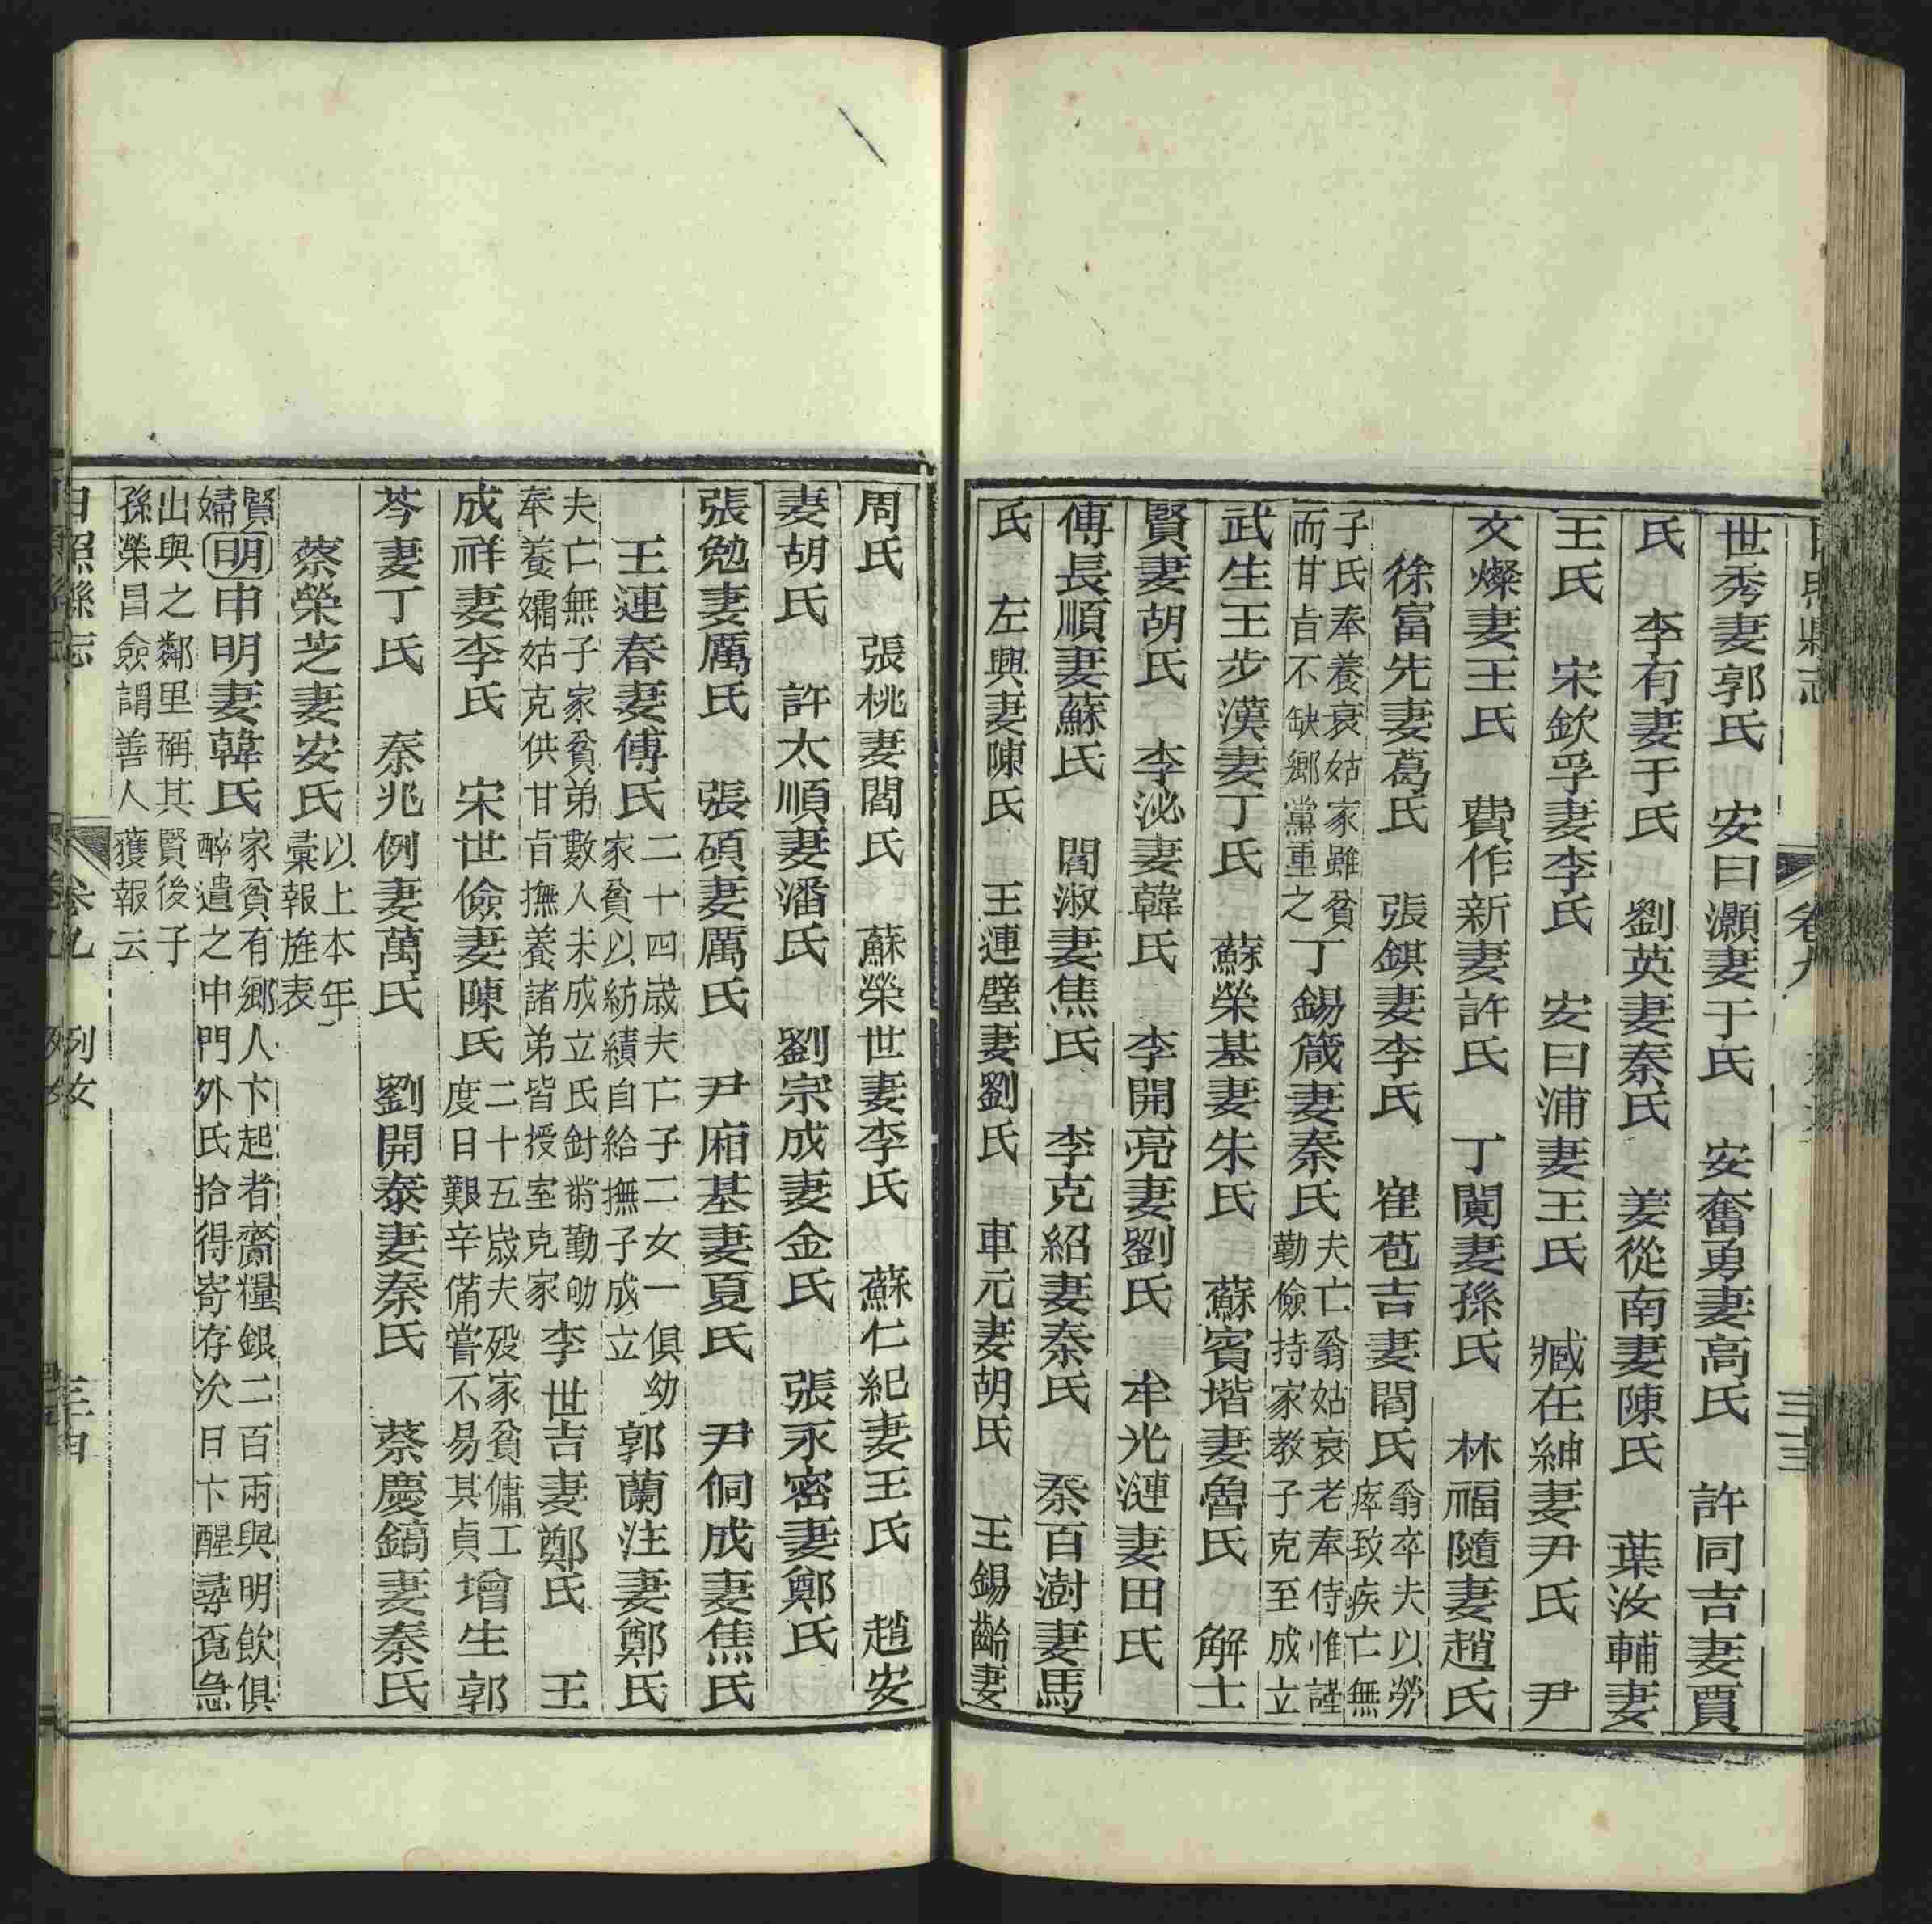 日照縣志 卷九 三三
世秀妻郭氏 安曰灝妻于氏 安奮勇妻高氏 許同吉妻賈
氏 李有妻于氏 劉英妻秦氏 姜從南妻陳氏 葉汝輔妻
王氏 宋欽孚妻李氏 安曰浦妻王氏 臧在紳妻尹氏 尹
文燦妻王氏 費作新妻許氏 丁闃妻孫氏 林福隨妻趙氏
徐富先妻葛氏 張錤妻李氏 崔苞吉妻閻氏 翁卒夫以勞
瘁致疾亡無
子氏奉養衰姑家雖貧
而甘旨不缺鄉黨重之 丁錫箴妻秦氏 夫亡翁姑衰老奉侍惟謹
勤儉持家教子克至成立
武生王步漢妻丁氏 蘇榮基妻朱氏 蘇賓堦妻魯氏 解士
賢妻胡氏 李泌妻韓氏 李開亮妻劉氏 牟光漣妻田氏
傅長順妻蘇氏 閻淑妻焦氏 李克紹妻秦氏 秦百澍妻馬
氏 左興妻陳氏 王連璧妻劉氏 車元妻胡氏 王錫齡妻
周氏 張桃妻閻氏 蘇榮世妻李氏 蘇仁紀妻王氏 趙安
妻胡氏 許太順妻潘氏 劉宗成妻金氏 張永密妻鄭氏
張勉妻厲氏 張碩妻厲氏 尹廂基妻夏氏 尹侗成妻焦氏
王連春妻傅氏 二十四歲夫亡子二女一俱幼
家貧以紡績自給撫子成立 郭蘭注妻鄭氏
夫亡無子家貧弟數人未成立氏針黹勤劬
奉養孀姑克供甘旨撫養諸弟皆授室克家 李世吉妻鄭氏 王
成祥妻李氏 宋世儉妻陳氏 二十五歲夫歿家貧傭工
度日艱辛備嘗不易其貞 增生郭
芩妻丁氏 秦兆例妻萬氏 劉開泰妻秦氏 蔡慶鎬妻秦氏
蔡榮芝妻安氏 以上本年
彙報旌表
賢
婦 明 申明妻韓氏 家貧有鄉人卞起者齎糧銀二百兩與明飲俱
醉遺之中門外氏拾得寄存次日卞醒尋覓急
出與之鄰里稱其賢後子
孫榮昌僉謂善人獲報云
日照縣志 卷九 列女 三十四